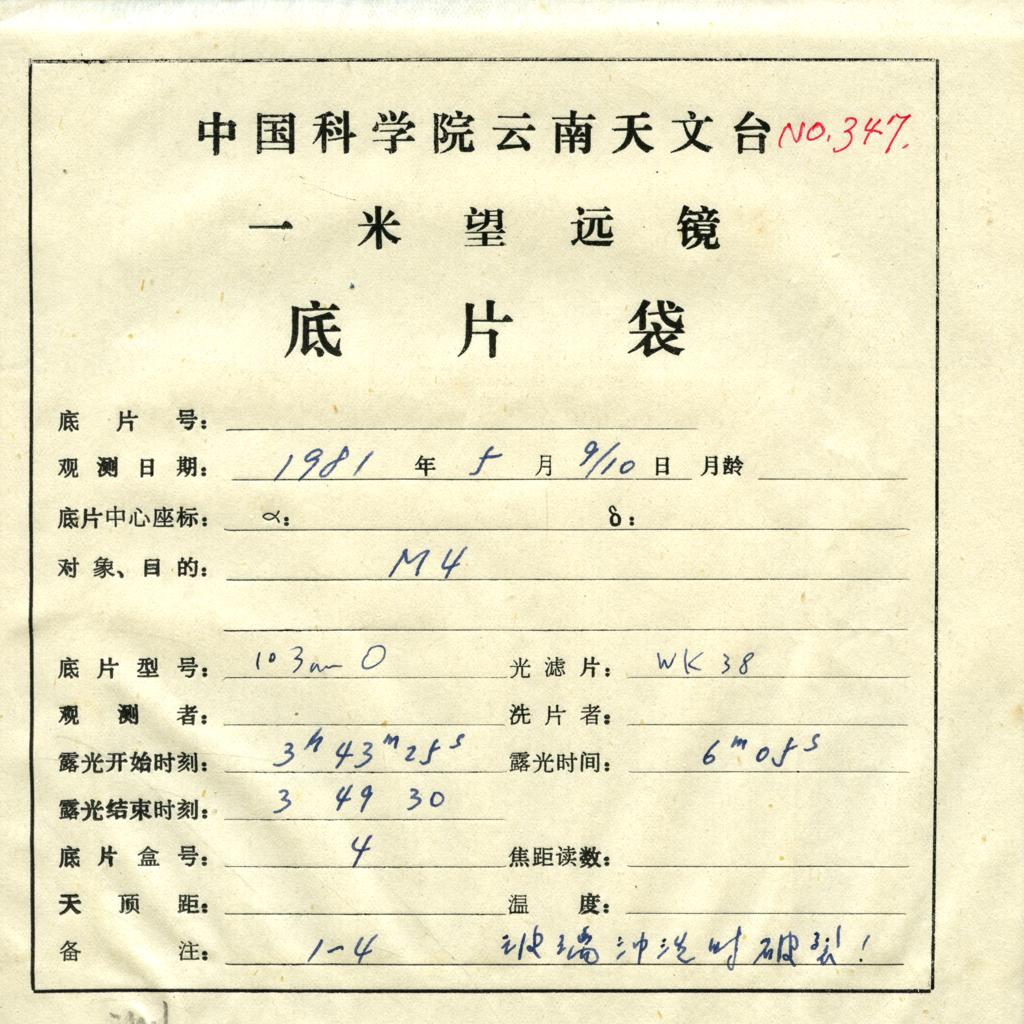 中国科学院云南天文台 NO.347.
一米望远镜
底片袋
底片号：
观测日期： 1981 年 5 月 9/10 日 月龄
底片中心座标： α： δ：
对象、目的： M4
底片型号： 103a O 光滤片： WK38
观测者： 洗片者：
露光开始时刻： 3h 43m 25s 露光时间： 6m 05s
露光结束时刻： 3 49 30
底片盒号： 4 焦距读数：
天顶距： 温度：
备注： 1-4 玻璃冲洗时破裂！